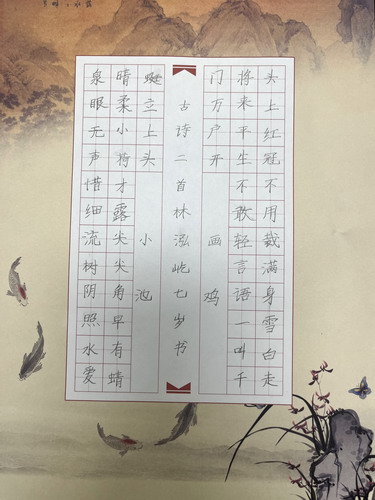 头上红冠不用裁满身雪白走
将来平生不敢轻言语一叫千
门万户开 画鸡
古诗二首林泓屹七岁书
泉眼无声惜细流树阴照水爱
晴柔小荷才露尖尖角早有蜻
蜓立上头 小池